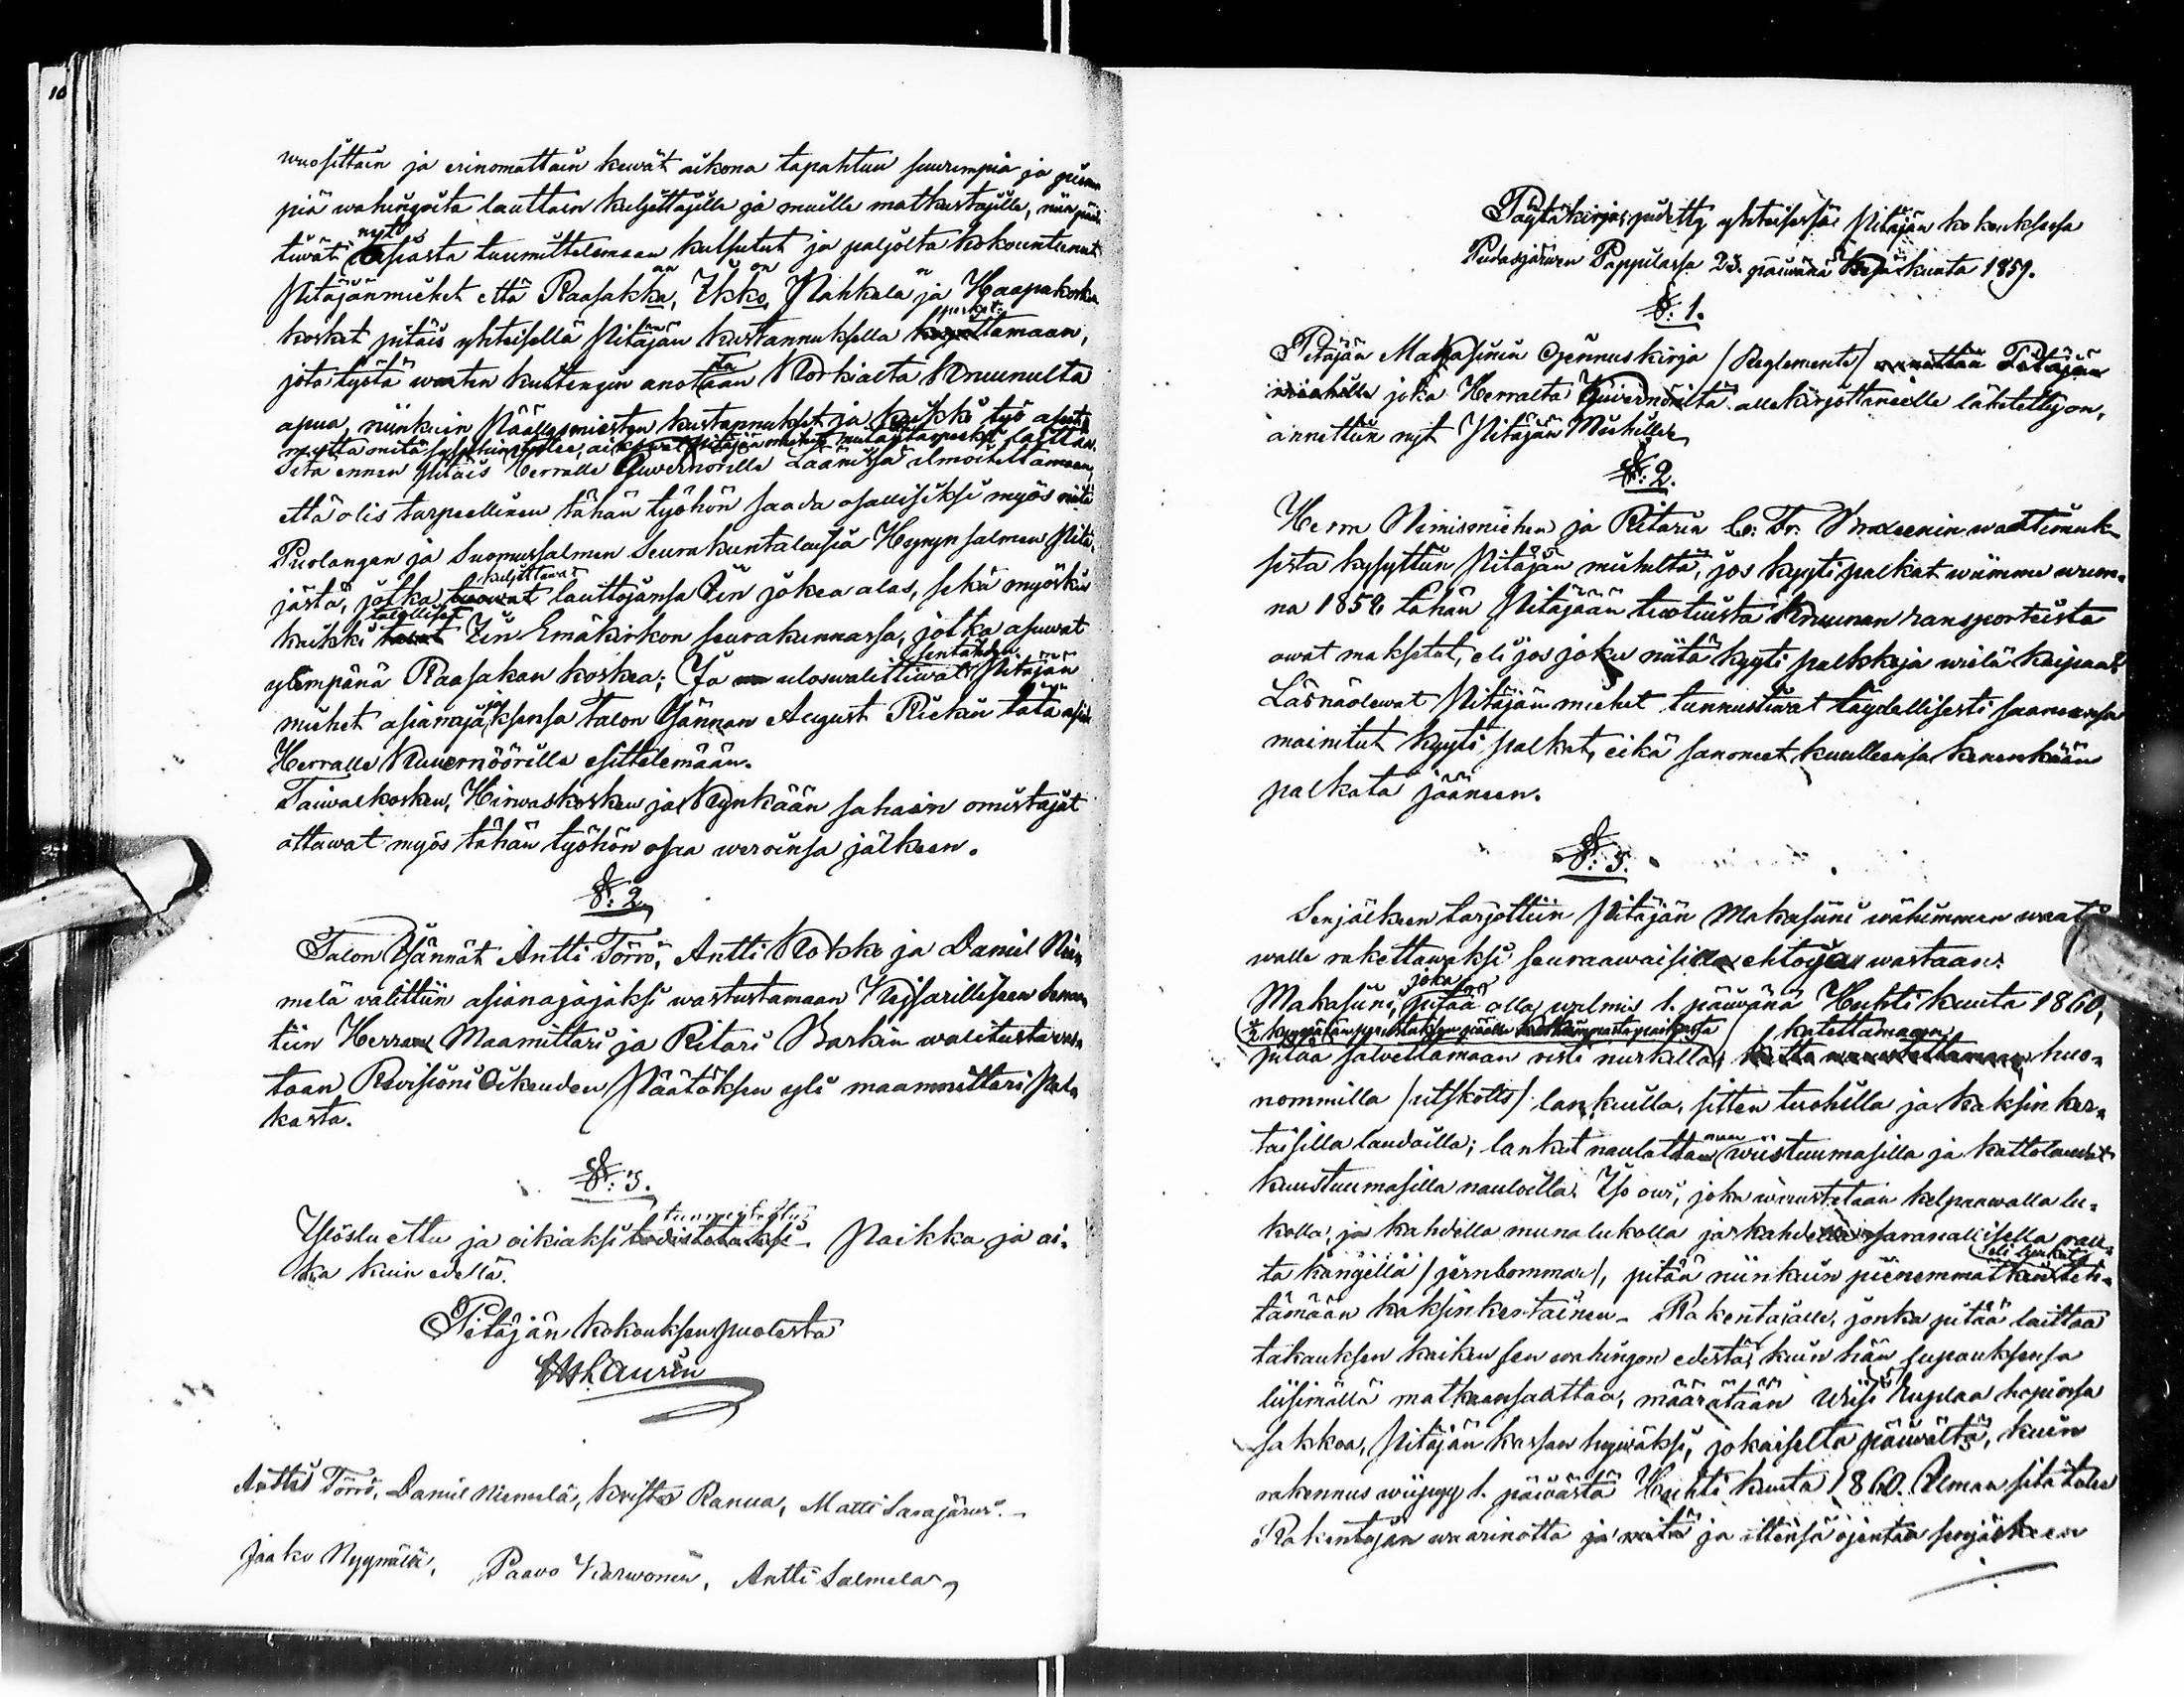 10
wuosittain ja erinomattain kewät aikona tapahtuu suurempia ja
piä wahingoita lauttain kuljettajille ja muille matkustajille, niin
nyt
tiwät asiasta tuumittelemaan kutsutut ja paljolta kokountunut
an on n
Pitäjänmiehet että Raasakka, Ikko, Pahkala ja Haapakoska
perkat
kosket pitäis yhteisellä Pitäjän kustannuksella tamaan,
ta
jota työtä warten kuitengin anotaan Korkialta Kruunulta
apua, niinkuin Päällysmiesten kustannukset ja kaikki työ
mutta
Sitä ennen pitäis Herralle Guvernörille Läänissä ilmoitettamaan,
että olis tarpeellinen tähän työhön saada osalliseksi myös niitä
Puolangan ja Suomussalmen Seurakuntalaisia Hyrynsalmen Pitä-
kuljettawat
jästä, jotka tuowat lauttojansa Iin jokea alas, sekä myöskin
talolliset
kaikki talot Iin Emäkirkon seurakunnassa, jotka asuwat
sentähden
ylempänä Raasakan koskea; Ja uloswalittiwat Pitäjän
miehet asianajajaksensa talon Isännän August Riekin tätä asiaa
Herralle Kuvernöörille esittelemään.
Taiwalkosken, Hirwaskosken ja Kynkään sahain omistajat
ottawat myös tähän työhön osaa weroinsa jälkeen.
§: 2.
Talon Isännät Antti Törrö, Antti Kokko ja Daniel Nie-
melä valittiin asianajajaksi wastustamaan Kejsarilliseen Senaa-
tiin Herran Maamittari ja Ritari Barkin walitusta was-
taan Revisioni Oikeuden Päätöksen yli maanmittari pal-
kasta.
§: 3.
tunnustetu
Ylösluettu ja oikiaksi todistetuksi. Paikka ja ai-
ka kuin edellä.
Pitäjän kokouksen puolesta
Laurin
Antti Törrö, Daniel Niemelä, Krister Ranua, Matti Sarajärwi.
Jaako Nyynäkki, Paavo Karwonen, Antti Salmela
Pöytäkirja, pidetty yhteisessä Pitäjän kokouksessa
Pudasjärwen Pappilassa 23. päiwänä kuuta 1859.
§: 1.
Pitäjän Makasinin Ojennuskirja /Reglementi/ Pitäjän
miehille joka Herralta Guvernöriltä allekirjottaneelle lähetetty on,
annettiin nyt Pitäjän Miehille
§: 2.
Herra Nimismiehen ja Ritarin C: Fr: waatimuk-
sesta kysyttiin Pitäjän miehiltä, jos kyytipalkat wiimme wuon-
na 1858 tähän Pitäjään tuotuista Kruunun ransporteista
owat maksetut, eli jos joku näitä kyyti palkkoja wielä kaipaa?
Läsnäolewat Pitäjänmiehet tunnustiwat täydellisesti saaneensa
mainitut kyyti palkat, eikä sanoneet kuulleensa kenenkään
palkata jääneen.
§: 3.
Senjälkeen tarjottiin Pitäjän Makasiini wähimmän waati-
walle rakettawaksi seuraawaisilla ehtoja wastaan:
joka
Makasiini, pitää olla walmis 1. päiwänä Huhti kuuta 1860,
katettamaan
pitää salwettamaan risti nurkilla, huo-
nommilla /utskotts/ lankuilla, sitten tuohilla ja kaksin ker-
taisilla laudoilla; lankut naulattaan wiistuumasilla ja kattolaudat
kuustuumasilla nauloilla. Iso owi, joka waustetaan kelpaawalla lu-
kolla, ja kahdella munalukolla ja kahdella saranallisella rau-
eli luukut
ta kangella /jernbommar/, pitää niinkuin pienemmätkin teh-
tämään kaksinkertainen. Rakentajalle, jonka pitää laittaa
takauksen kaiken sen wahingon edestä, kuin hän lupauksensa
liisimällä matkaansaattaa, määrätään Wiisi Ruplaa hopiassa
sakkoa, Pitäjän kassan hywäksi, jokaiselta päiwältä, kuin
rakennus wiipyy 1. päiwästä Huhti kuuta 1860. Ilman sitä tulee
Rakentajan waarinotta ja ja ittensä ojentaa senjälkeen